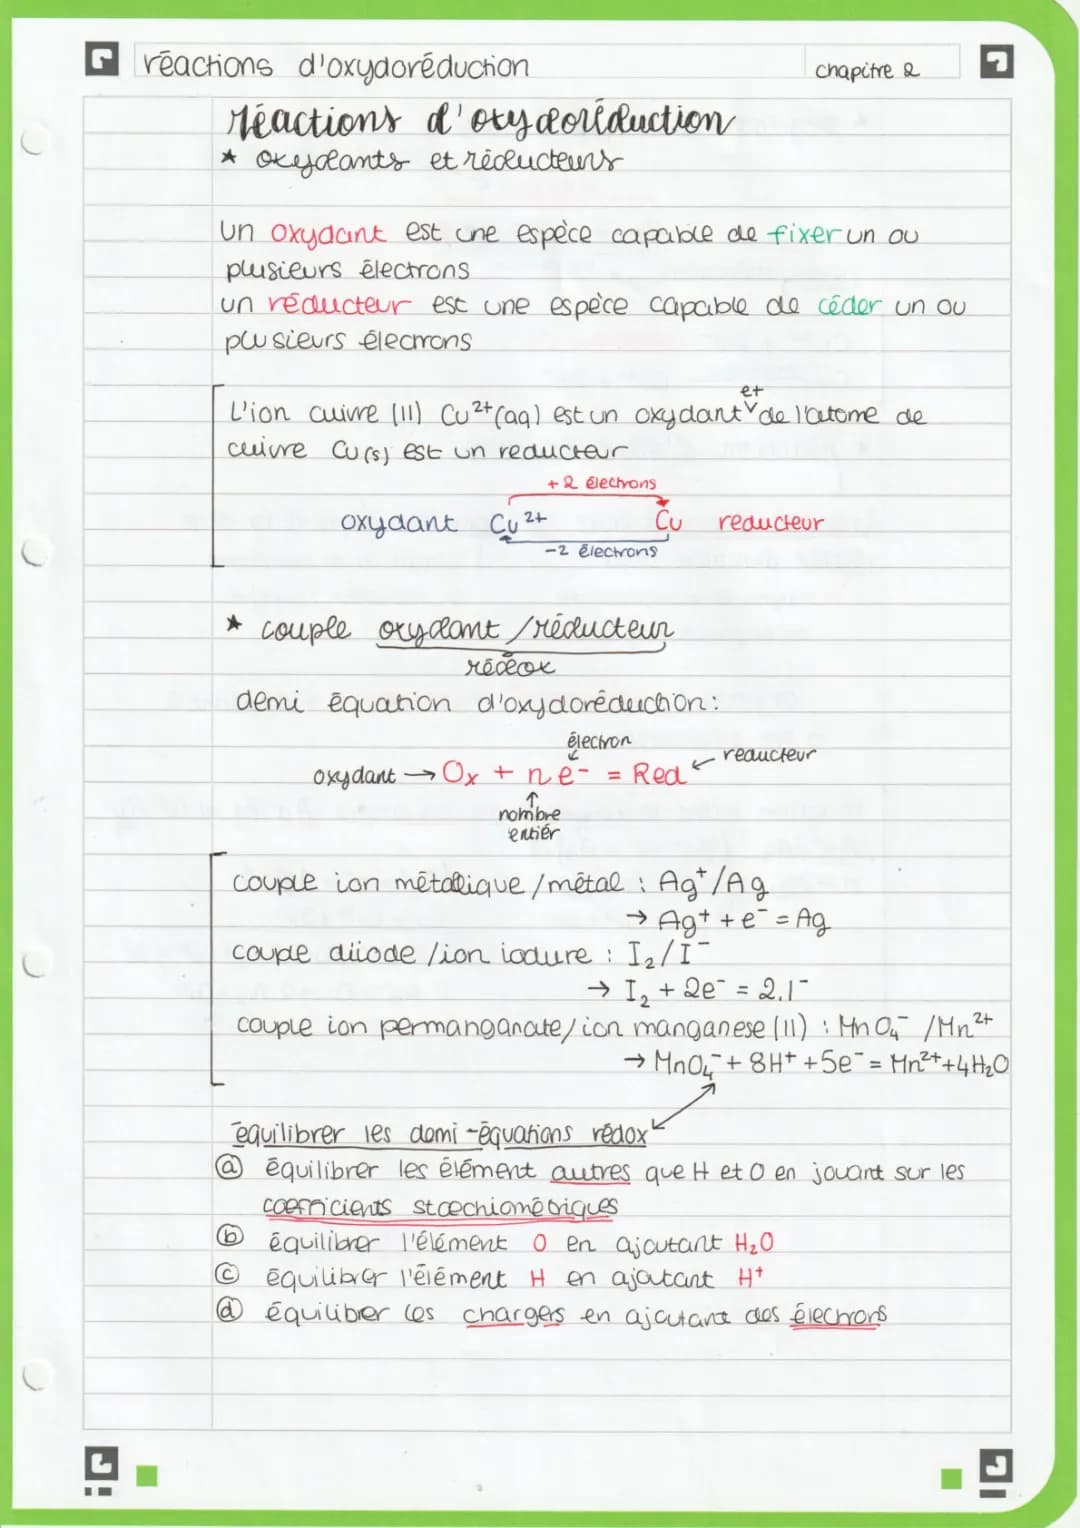 réactions d'oxydoréduction
chapitre 2
réactions d'oxydoréduction
* oxydants et réducteurs
un oxydant est une espèce capable de fixer un ou
plusieurs électrons
un réducteur est une espèce capable de céder un ou
plusieurs électrons
et
L'ion cuivre (II) Cu²⁺(aq) est un oxydant ∨ de l'atome de
cuivre Cu(s) est un reducteur
+2 électrons
oxydant Cu²⁺ Cu reducteur
-2 électrons
* couple oxydant /réducteur
rédeox
demi équation d'oxydoréduction:
électron
reducteur
oxydant → Ox + ne⁻ = Red ←
↑
nombre
entiér
couple ion métallique /métal : Ag⁺/Ag
→ Ag⁺ + e⁻ = Ag
couple diiode /ion iodure : I₂/I⁻
→ I₂ + 2e⁻ = 2.I⁻
couple ion permanganate/ion manganese (II) : MnO₄⁻ /Mn²⁺
→ MnO₄⁻ + 8H⁺ + 5e⁻ = Mn²⁺+4H₂O
équilibrer les demi-équations rédox
ⓐ équilibrer les élément autres que H et O en jouant sur les
coefficients stœchiométriques
ⓑ équilibrer l'élément O en ajoutant H₂O
ⓒ équilibrer l'élément H en ajoutant H⁺
ⓓ équilibrer les chargers en ajoutant des électrons